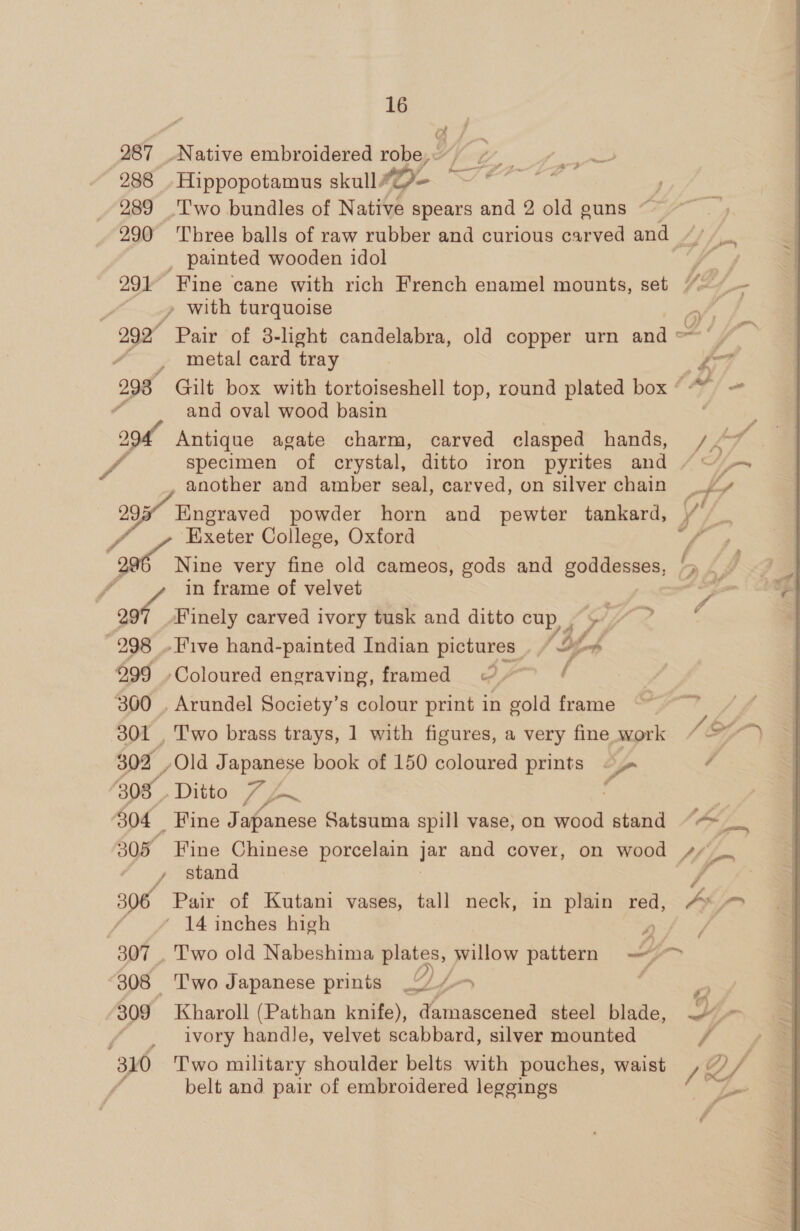 16
287 Native embroidered robe
288 Hippopotamus skull
289 Two bundles of Native spears and 2 old guns
290 Three balls of raw rubber and curious carved and
painted wooden idol
291 Fine cane with rich French enamel mounts, set
with turquoise
292 Pair of 3-light candelabra, old copper urn and
metal card tray
293 Gilt box with tortoiseshell top, round plated box
and oval wood basin
294 Antique agate charm, carved clasped hands,
specimen of crystal, ditto iron pyrites and
another and amber seal, carved, on silver chain
295 Engraved powder horn and pewter tankard,
Exeter College, Oxford
296 Nine very fine old cameos, gods and goddesses,
in frame of velvet
297 Finely carved ivory tusk and ditto cup
298 Five hand-painted Indian pictures
299 Coloured engraving, framed
300 Arundel Society's colour print in gold frame
301 Two brass trays, 1 with figures, a very fine work
302 Old Japanese book of 150 coloured prints
303 Ditto
304 Fine Japanese Satsuma spill vase, on wood stand
305 Fine Chinese porcelain jar and cover, on wood
stand
306 Pair of Kutani vases, tall neck, in plain red,
14 inches high
307 Two old Nabeshima plates, willow pattern
308 Two Japanese prints
309 Kharoll (Pathan knife), damascened steel blade,
ivory handle, velvet scabbard, silver mounted
310 Two military shoulder belts with pouches, waist
belt and pair of embroidered leggings